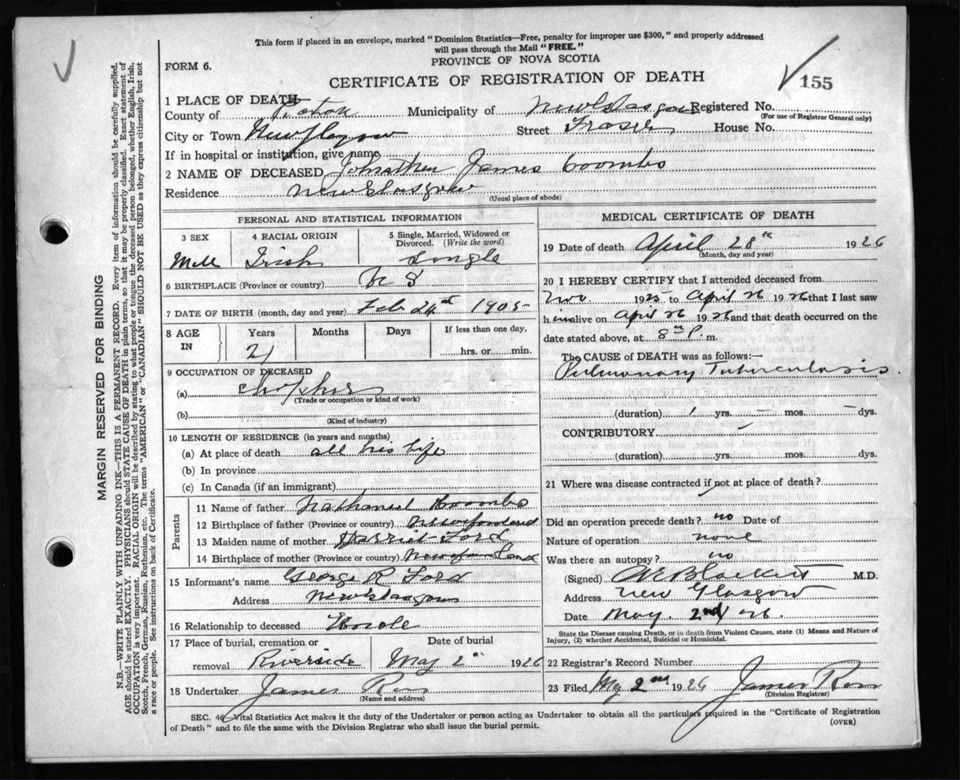 This form if placed in an envelope, marked "Dominion Statistics—Free, penalty for improper use $300," and properly addressed
will pass through the Mail "FREE."
FORM 6.
PROVINCE OF NOVA SCOTIA
CERTIFICATE OF REGISTRATION OF DEATH
155
1 PLACE OF DEATH
County of Pictou Municipality of New Glasgow Registered No.
(For use of Registrar General only)
City or Town New Glasgow Street Fraser House No.
If in hospital or institution, give name
2 NAME OF DECEASED Johnathen James Coombs
Residence New Glasgow
(Usual place of abode)
PERSONAL AND STATISTICAL INFORMATION
3 SEX 4 RACIAL ORIGIN 5 Single, Married, Widowed or
Divorced. (Write the word)
Irish Single
6 BIRTHPLACE (Province or country) N S
7 DATE OF BIRTH (month, day and year) Feb 24 1905
8 AGE IN Years Months Days If less than one day,
21 hrs. or min.
9 OCCUPATION OF DECEASED
(a)
(Trade or occupation or kind of work)
(b)
(Kind of industry)
10 LENGTH OF RESIDENCE (in years and months)
(a) At place of death all his life
(b) In province
(c) In Canada (if an immigrant)
Parents
11 Name of father Nathaniel Coombs
12 Birthplace of father (Province or country) Newfoundland
13 Maiden name of mother Harriet Ford
14 Birthplace of mother (Province or country) Newfoundland
15 Informant's name George R Ford
Address New Glasgow
16 Relationship to deceased
17 Place of burial, cremation or Date of burial
removal Riverside May 2 1926
18 Undertaker James Ross
(Name and address)
MEDICAL CERTIFICATE OF DEATH
19 Date of death April 28th 1926
(Month, day and year)
20 I HEREBY CERTIFY that I attended deceased from
Nov 1925 to April 26 1926 that I last saw
h im alive on April 26 1926 and that death occurred on the
date stated above, at 8 P. m.
The CAUSE of DEATH was as follows:—
Pulmonary Tuberculosis.
(duration) 1 yrs. — mos. — dys.
CONTRIBUTORY —
(duration) yrs. mos. dys.
21 Where was disease contracted if not at place of death?
Did an operation precede death? no Date of
Nature of operation none
Was there an autopsy? no
(Signed) M.D.
Address New Glasgow
Date May 2nd 26
State the Disease causing Death, or in death from Violent Causes, state (1) Means and Nature of
Injury, (2) whether Accidental, Suicidal or Homicidal.
22 Registrar's Record Number
23 Filed May 2nd 1926 James Ross
(Division Registrar)
SEC. 46 Vital Statistics Act makes it the duty of the Undertaker or person acting as Undertaker to obtain all the particulars required in the "Certificate of Registration
of Death" and to file the same with the Division Registrar who shall issue the burial permit.
(OVER)
MARGIN RESERVED FOR BINDING
N.B.—WRITE PLAINLY WITH UNFADING INK—THIS IS A PERMANENT RECORD. Every item of information should be carefully supplied.
AGE should be stated EXACTLY. PHYSICIANS should STATE CAUSE OF DEATH in plain terms, so that it may be properly classified. Exact statement of
OCCUPATION is very important. RACIAL ORIGIN will be described by stating to what people or tongue the deceased person belonged, whether English, Irish,
Scotch, French, German, Russian, Ruthenian, etc. The terms "AMERICAN" or "CANADIAN" SHOULD NOT BE USED as they express citizenship but not
a race or people. See instructions on back of Certificate.